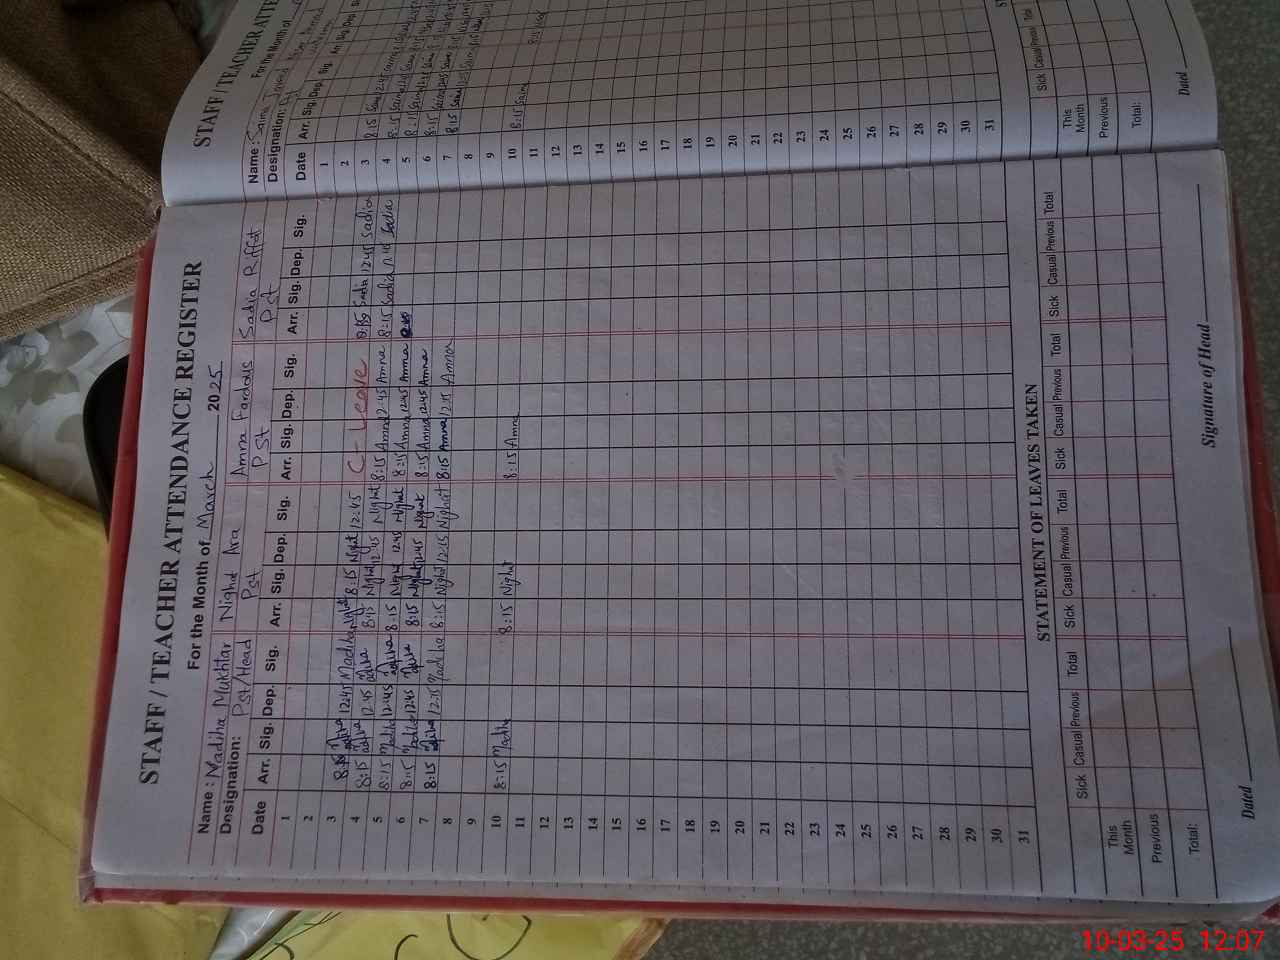 STAFF / TEACHER ATTENDANCE REGISTER
For the Month of March 2025
Name : Madiha Mukhtar Nighat Ara Amna Fardous Sadia Riffat
Designation: Pst/Head Pst PSt Pst
Date Arr. Sig. Dep. Sig. Arr. Sig. Dep. Sig. Arr. Sig. Dep. Sig. Arr. Sig. Dep. Sig.
1
2
3 8:15 Madiha 12:45 Madiha 8:15 Nighat 12:45 Nighat C- Leave 8:15 Sadia 12:45 Sadia
4 8:15 Madiha 12:45 Madiha 8:15 Nighat 12:45 Nighat 8:15 Amna 12:45 Amna 8:15 Sadia 12:45 Sadia
5 8:15 Madiha 12:45 Madiha 8:15 Nighat 12:45 Nighat 8:15 Amna 12:45 Amna
6 8:15 Madiha 12:45 Madiha 8:15 Nighat 12:45 Nighat 8:15 Amna 12:45 Amna
7 8:15 Madiha 12:15 Madiha 8:15 Nighat 12:15 Nighat 8:15 Amna 12:15 Amna
8
9
10 8:15 Madiha 8:15 Nighat 8:15 Amna
11
12
13
14
15
16
17
18
19
20
21
22
23
24
25
26
27
28
29
30
31
STATEMENT OF LEAVES TAKEN
Sick Casual Previous Total Sick Casual Previous Total Sick Casual Previous Total Sick Casual Previous Total
This Month
Previous
Total:
Dated Signature of Head
STAFF / TEACHER ATTE
For the Month of
Name : Saima Javed
Designation: Pst
Date Arr. Sig. Dep. Sig. Arr. Sig. Dep.
1
2
3 8:15 Saima 12:45 Saima
4 8:15 Saima
5 8:15 Saima
6 8:15 Saima
7 8:15 Saima
8
9
10 8:15 Saima
11
12
13
14
15
16
17
18
19
20
21
22
23
24
25
26
27
28
29
30
31
Sick Casual Previous Total
This Month
Previous
Total:
Dated
10-03-25 12:07